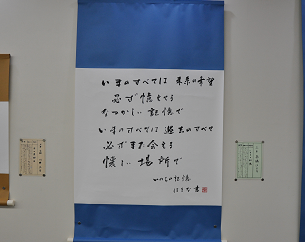 いまのすべては 未来の希望
必ず憶えてる
なつかしい記憶で
いまのすべては 過去のすべて
必ずまた会える
懐しい場所で
いのちの記憶